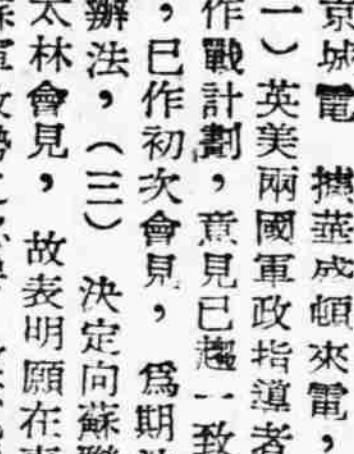 京城電　據華成頓來電，
一）英美兩國軍政指導者
作戰計劃，意見已趨一致
，已作初次會見，爲期
辦法，（三）決定向蘇聯
太林會見，故表明願在